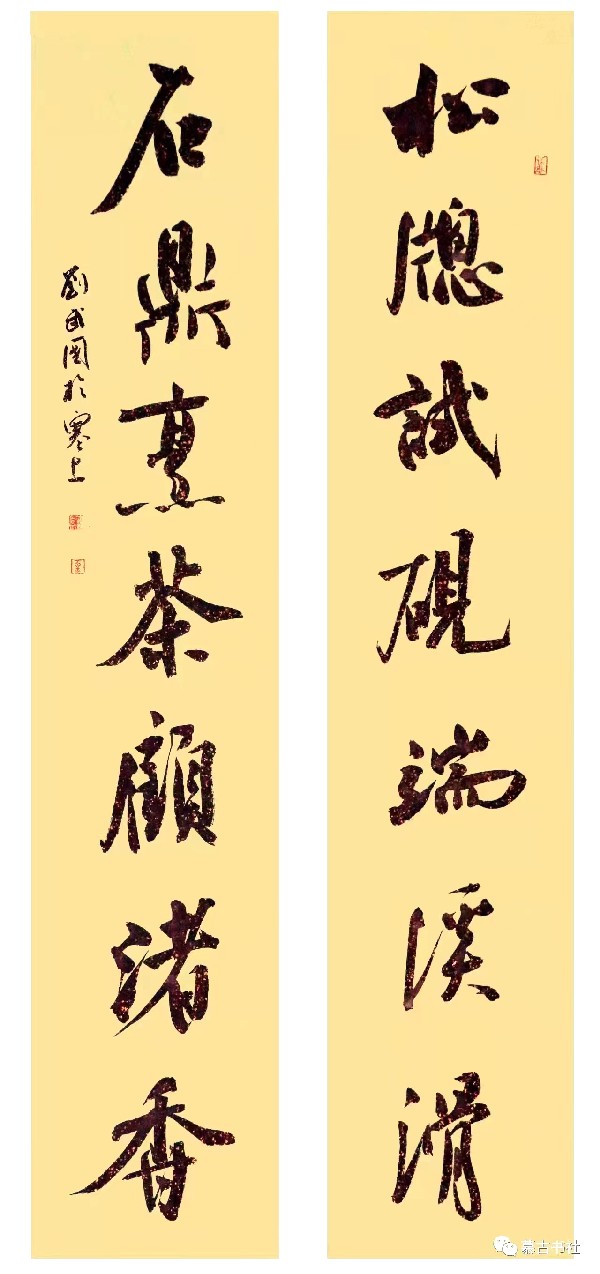 松牕試硯端溪滑
石鼎烹茶顧渚香
劉武國於塞上
慕古书社